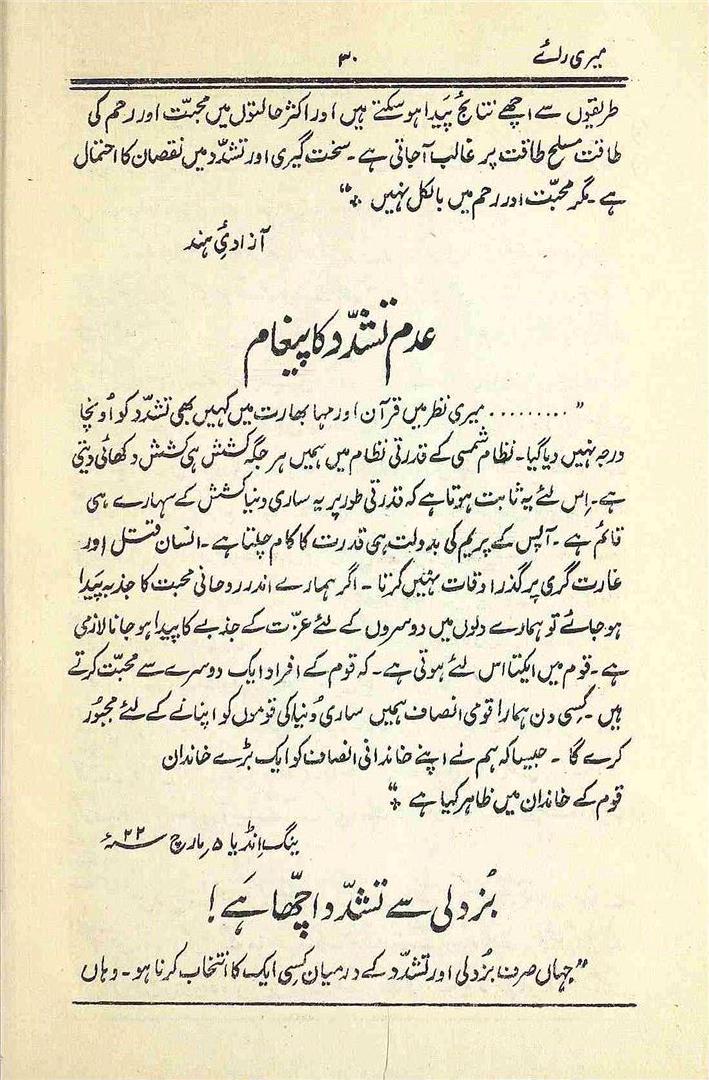 میری رائے ۳۰
طریقوں سے اچھے نتائج پَیدا ہو سکتے ہیں اور اکثر حالتوں میں محبّت اور رحم کی
طاقت مسلح طاقت پر غالب آجاتی ہے۔ سخت گیری اور تشدّد میں نقصان کا احتمال
ہے۔ مگر محبّت اور رحم میں بالکل نہیں ❊“
آزادیٔ ہند
عدم تشدّد کا پیغام
” ......... میری نظر میں قرآن اور مہا بھارت میں کہیں بھی تشدّد کو اُونچا
درجہ نہیں دیا گیا۔ نظام شمسی کے قدرتی نظام میں ہمیں ہر جگہ کشش ہی کشش دکھائی دیتی
ہے۔ اِس لئے یہ ثابت ہوتا ہے کہ قدرتی طور پر یہ ساری دنیا کشش کے سہارے ہی
قائم ہے۔ آپس کے پریم کی بدولت ہی قدرت کا کام چلتا ہے۔ انسان قتل اور
غارت گری پر گذر اوقات نہیں کرتا۔ اگر ہمارے اندر روحانی محبت کا جذبہ پَیدا
ہو جائے تو ہمارے دلوں میں دوسروں کے لئے عزّت کے جذبے کا پیدا ہو جانا لازمی
ہے۔ قوم میں ایکتا اس لئے ہوتی ہے۔ کہ قوم کے افراد ایک دوسرے سے محبّت کرتے
ہیں۔ کِسی دن ہمارا قومی انصاف ہمیں ساری دُنیا کی قوموں کو اپنانے کے لئے مجبُور
کرے گا۔ جیسا کہ ہم نے اپنے خاندانی انصاف کو ایک بڑے خاندان
قوم کے خاندان میں ظاہر کیا ہے ❊“
ینگ اِنڈیا ۵ مارچ ۲۲ء
بُزدلی سے تشدّد اچھّا ہَے!
”جہاں صرف بُزدلی اور تشدّد کے درمیان کِسی ایک کا انتخاب کرنا ہو۔ وہاں